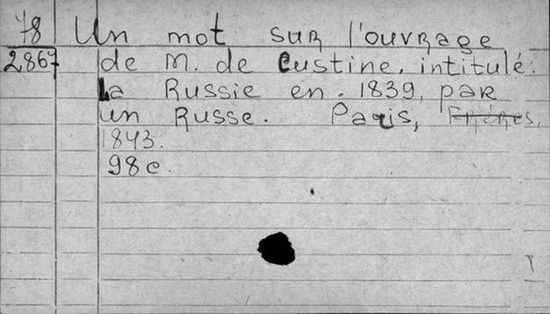 78 Un mot sur l'ouvrage
2867 de M. de Custine, intitulé:
La Russie en 1839, par
un Russe. Paris, Frères,
1843.
98 c.